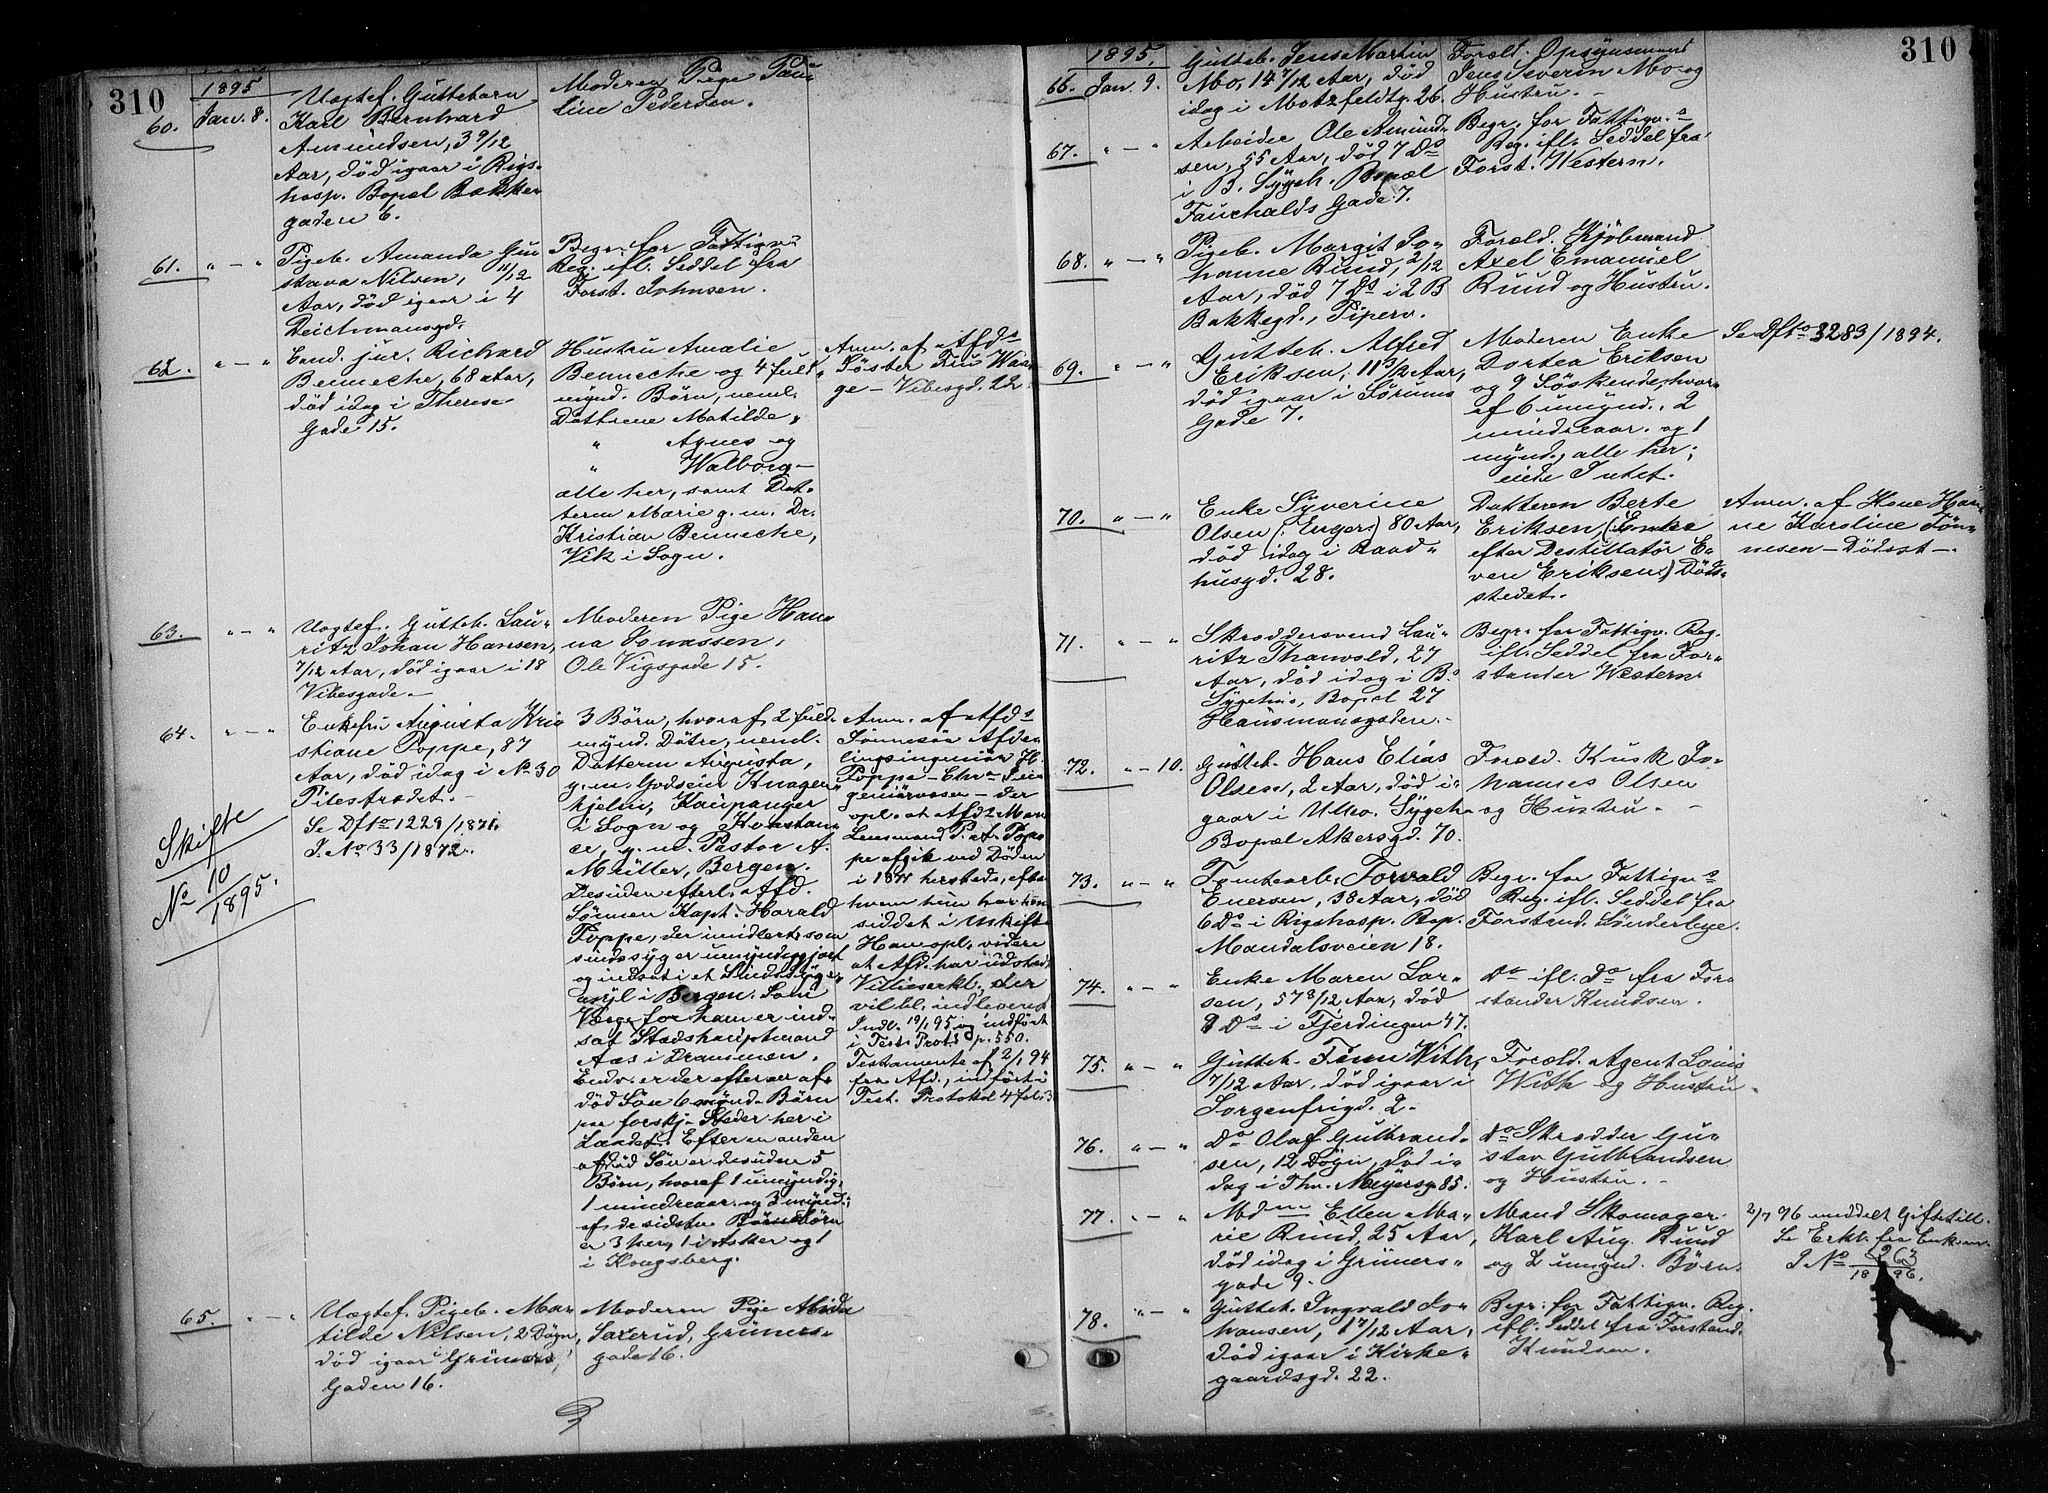 310
1895
60. Jan. 8. Uægtef. Guttebarn
Karl Bernhard
Amundsen, 3 9/12
Aar, død igaar i Rigs-
hosp. Bopæl Bakke-
gaden 6.
Moderen Pige Pau-
line Pedersen.
61. " — " Pigeb. Amanda Gu-
stava Nilsen, 11/12
Aar, død igaar i 4
Deichmansgd.
Begr. for Fattigv.s
Reg. ifl. Seddel fra
Forst. Johnsen.
62. " — " Cand. jur. Richard
Bennecke, 68 Aar,
død idag i Therese-
Gade 15.
Hustru Amalie
Bennecke og 4 fuld-
mynd. Børn, neml.
Døttrene Matilde,
" Agnes og
" Walborg —
alle her, samt Dat-
teren Marie g. m. Dr.
Kristian Bennecke,
Vik i Sogn.
Anm. af Afd.s
Søster Fru Waa-
ge — Vibesgd. 22.
63. " — " Uægtef. Gutteb. Lau-
ritz Johan Hansen,
7/12 Aar, død igaar i 18
Vibesgade.
Moderen Pige Han-
na Jonassen,
Ole Vigsgade 15.
64. " — " Enkefru Augusta Kri-
stiane Poppe, 87
Aar, død idag i No 30
Pilestrædet.
Se Dfto 1229/1871.
J. No 33/1872.
Skifte
No 10/1895.
3 Børn, hvoraf 2 fuld-
mynd. Døtre, neml.
Datteren Augusta,
g. m. Godseier Knagen-
hjelm, Kaupanger
i Sogn og Konstan-
ce, g. m. Pastor A.
Müller, Bergen.
Desuden efterl. Afd.
Sønnen Kapt. Harald
Poppe, der imidlert. som
sindssyg er umyndiggjort
og indsat i et Sindssyge-
asyl i Bergen. Som
Værge for ham er ind-
sat Stadshauptmand
Aas i Drammen.
Endv. er der efter en af-
død Søn 6 mynd. Børn
paa forskj. Steder her i
Landet. Efter en anden
afdød Søn er desuden 5
Børn, hvoraf 1 umyndig,
1 mindreaar. og 3 mynd.;
af de sidstn. Børnebørn
er 3 her, 1 i Asker og 1
i Kongsberg.
Anm. af Afd.s
Sønnesøn Afde-
lingsingeniør H.
Poppe — Chr.a In-
geniørvæsen — der
opl. at Afd.s Man
Lensmand P. A. Pop-
pe afgik ved Døden
i 1871 hersteds, efter
hvem hun har hen-
siddet i uskiftet
Han opl. videre
at Afd. har udstedt
Villieserkl., der
vil bl. indleveret
Indl. 19/1 95 og indført
i Test. Prot. 3 p. 550.
Testamente af 2/1 94
fra Afd., indført i
Test. Protokol 4 fol. 3
65. " — " Uægtef. Pigeb. Ma-
tilde Nilsen, 2 Døgn,
død igaar i Grüners
Gaden 16.
Moderen Pige Alida
Saxerud, Grüners-
gade 16.
310
1895.
66. Jan. 9. Gutteb. Jens Martin
Mo, 14 7/12 Aar, død
idag i Motzfeldtg. 26.
Foræld. Opsynsmand
Jens Severin Mo og
Hustru. —
67. " — " Arbeider Ole Amund-
sen, 55 Aar, død 7 Ds
i B. Sygeh. Bopæl
Fauchalds Gade 7.
Begr. for Fattigv.s
Reg. ifl. Seddel fra
Forst. Western.
68. " — " Pigeb. Margit Jo-
hanne Ruud, 2/12
Aar, død 7 Ds i 2 B
Bakkegd., Piperv.
Foræld. Kjøbmand
Axel Emanuel
Ruud og Hustru.
69. " — " Gutteb. Alfred
Eriksen, 11 3/12 Aar,
død igaar i Sørums
Gade 7.
Moderen Enke
Dortea Eriksen
og 9 Søskende, hvor-
af 6 umynd., 2
mindreaar. og 1
mynd., alle her;
eiede Intet.
Se Dfto 3283/1894.
70. " — " Enke Syverine
Olsen (Enger) 80 Aar,
død idag i Raad-
husgd. 28.
Datteren Berte
Eriksen, (Enke
efter Destillatør E-
ven Eriksen) Døds-
stedet.
Anm. af Kone Han-
ne Karoline Tøn-
nesen — Dødsst —.
71. " — " Skræddersvend Lau-
ritz Thanvold, 27
Aar, død idag i B.s
Sygehus, Bopæl 27
Hausmansgaden. —
Begr. for Fattigv. Reg.
ifl. Seddel fra For-
stander Western
72. " — 10. Gutteb. Hans Elias
Olsen, 2 Aar, død i-
gaar i Ullev. Sygeh.
Bopæl Akersgd. 70.
Foræld. Kusk Jo-
hannes Olsen
og Hustru. —
73. " — " Tomtearb. Torvald
Enersen, 38 Aar, død
6 Ds i Rigshosp. Bop.
Mandalsveien 18.
Begr. for Fattigv.s
Reg. ifl. Seddel fra
Forstand. Sønderbye.
74. " — " Enke Maren Lar-
sen, 57 8/12 Aar, død
9 Ds i Fjerdingen 47.
Do ifl. Do fra For-
stander Knudsen.
75. " — " Gutteb. Finn With,
7/12 Aar, død igaar i
Sorgenfrigd. 2.
Foræld. Agent Louis
With og Hustru
76. " — " Do Olaf Gulbrand-
sen, 12 Døgn, død i-
dag i Thv. Meyersg. 85.
do Skrædder Gu-
stav Gulbrandsen
og Hustru. —
77. " — " Mdme Ellen Ma-
rie Ruud, 25 Aar,
død idag i Grüners-
gade 9.
Mand Skomager
Karl Aug. Ruud
og 2 umynd. Børn.
2/7 96 meddelt Giftetill.
Se Erkl. fra Enkem.
J No 263/1896.
78. " — " Gutteb. Ingvald Jo-
hansen, 1 7/12 Aar,
død igaar i Kirke-
gaardsgd. 22.
Begr. for Fattigv. Reg.
ifl. Seddel fra Forstand.
Knudsen.